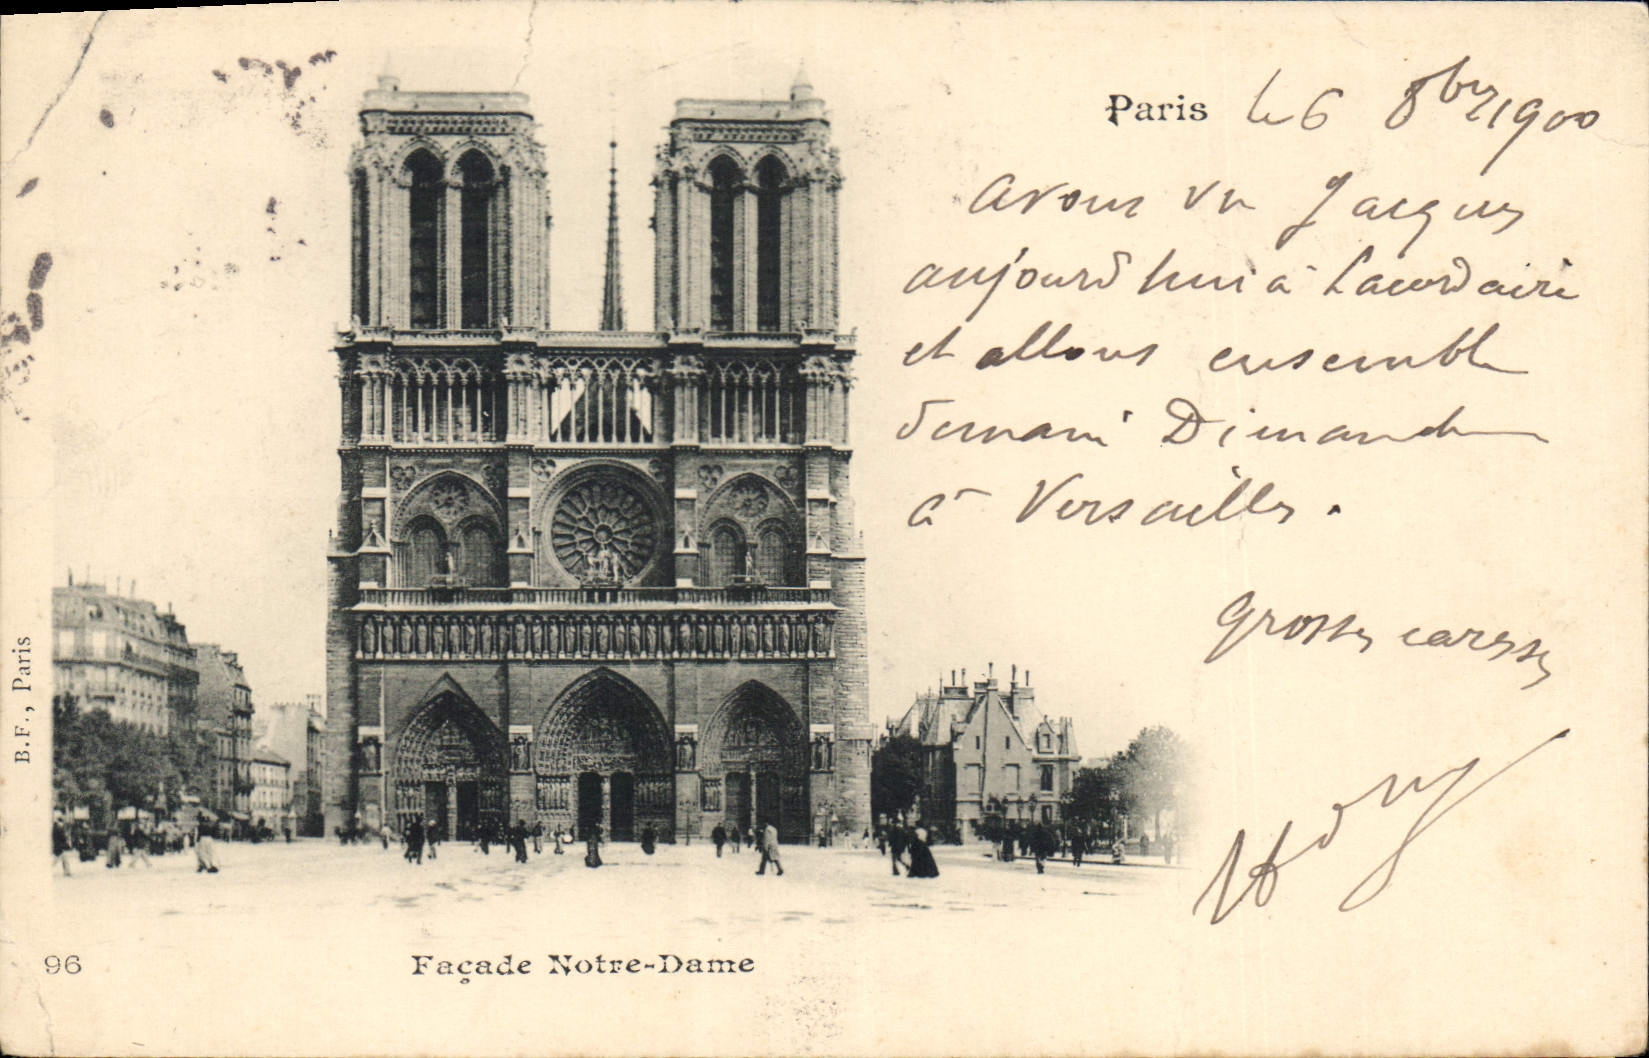 Paris le 6 8bre 1900
avons vu Jacques
aujourd'hui à Lacordaire
et allons ensemble
demain Dimanche
à Versailles.
Grosses caresses
B.F., Paris
96
Façade Notre-Dame